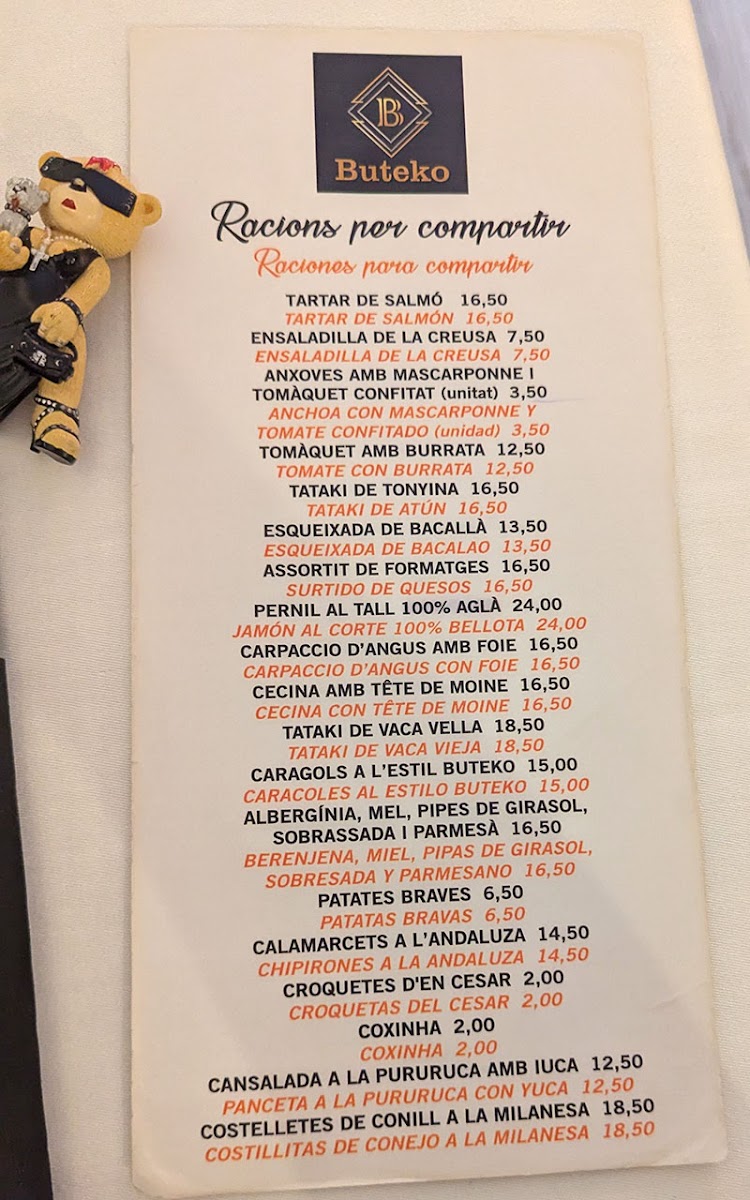 B
Buteko
Racions per compartir
Raciones para compartir
TARTAR DE SALMÓ 16,50
TARTAR DE SALMÓN 16,50
ENSALADILLA DE LA CREUSA 7,50
ENSALADILLA DE LA CREUSA 7,50
ANXOVES AMB MASCARPONNE I
TOMÀQUET CONFITAT (unitat) 3,50
ANCHOA CON MASCARPONNE Y
TOMATE CONFITADO (unidad) 3,50
TOMÀQUET AMB BURRATA 12,50
TOMATE CON BURRATA 12,50
TATAKI DE TONYINA 16,50
TATAKI DE ATÚN 16,50
ESQUEIXADA DE BACALLÀ 13,50
ESQUEIXADA DE BACALAO 13,50
ASSORTIT DE FORMATGES 16,50
SURTIDO DE QUESOS 16,50
PERNIL AL TALL 100% AGLÀ 24,00
JAMÓN AL CORTE 100% BELLOTA 24,00
CARPACCIO D'ANGUS AMB FOIE 16,50
CARPACCIO D'ANGUS CON FOIE 16,50
CECINA AMB TÊTE DE MOINE 16,50
CECINA CON TÊTE DE MOINE 16,50
TATAKI DE VACA VELLA 18,50
TATAKI DE VACA VIEJA 18,50
CARAGOLS A L'ESTIL BUTEKO 15,00
CARACOLES AL ESTILO BUTEKO 15,00
ALBERGÍNIA, MEL, PIPES DE GIRASOL,
SOBRASSADA I PARMESÀ 16,50
BERENJENA, MIEL, PIPAS DE GIRASOL,
SOBRESADA Y PARMESANO 16,50
PATATES BRAVES 6,50
PATATAS BRAVAS 6,50
CALAMARCETS A L'ANDALUZA 14,50
CHIPIRONES A LA ANDALUZA 14,50
CROQUETES D'EN CESAR 2,00
CROQUETAS DEL CESAR 2,00
COXINHA 2,00
COXINHA 2,00
CANSALADA A LA PURURUCA AMB IUCA 12,50
PANCETA A LA PURURUCA CON YUCA 12,50
COSTELLETES DE CONILL A LA MILANESA 18,50
COSTILLITAS DE CONEJO A LA MILANESA 18,50